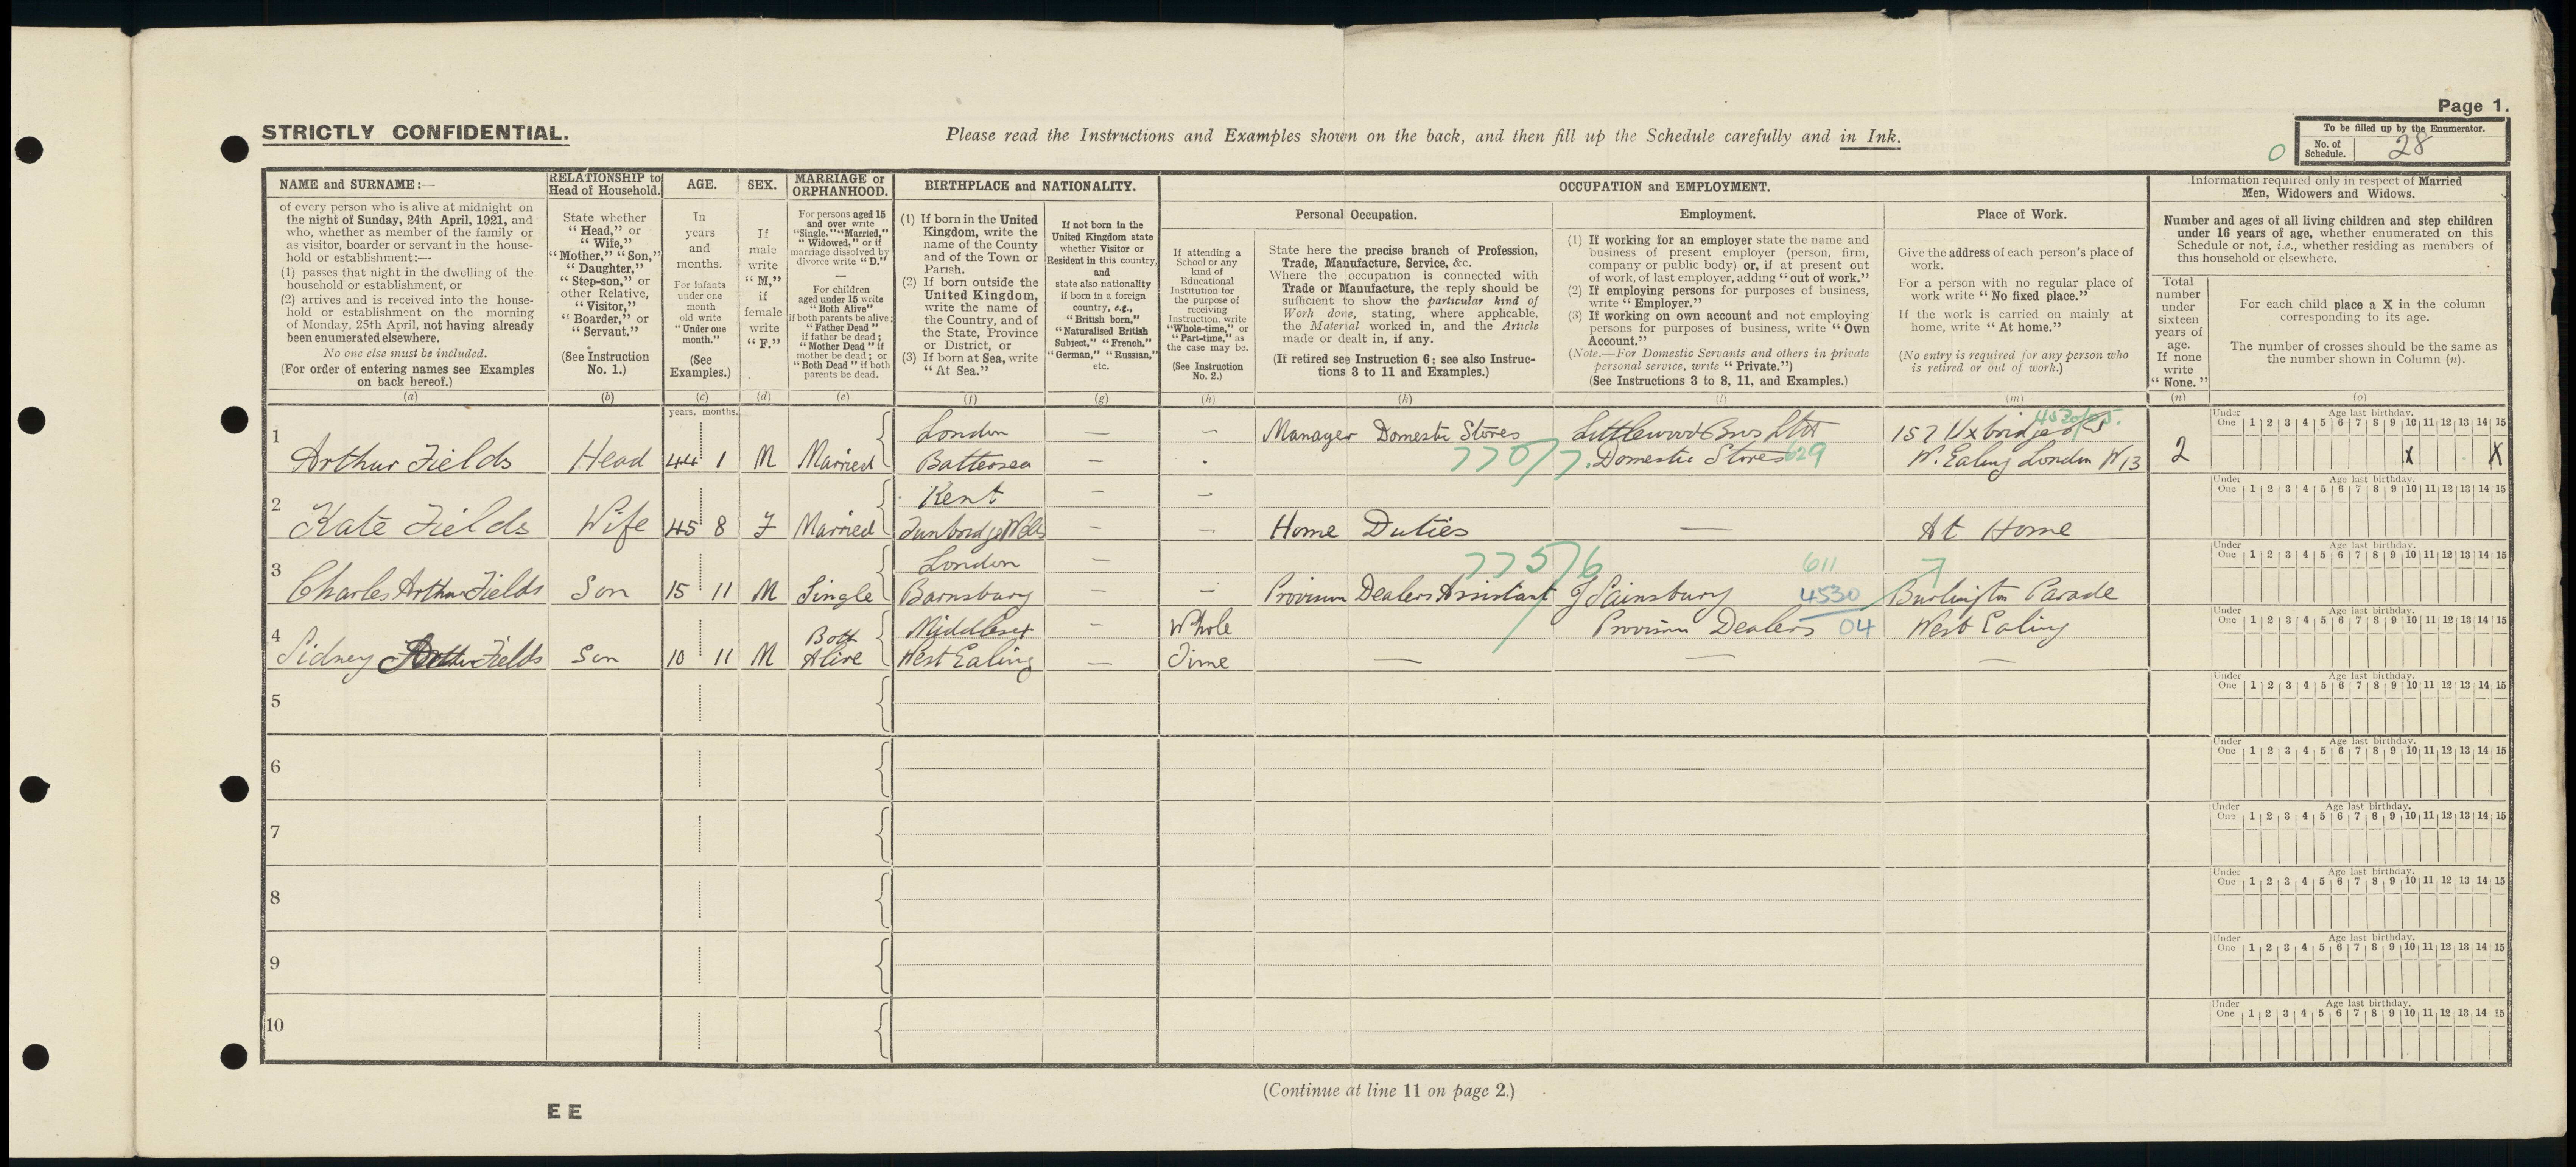 Page 1.
STRICTLY CONFIDENTIAL.
Please read the Instructions and Examples shown on the back, and then fill up the Schedule carefully and in Ink.
To be filled up by the Enumerator.
No. of Schedule. 28
0
NAME and SURNAME:—
of every person who is alive at midnight on
the night of Sunday, 24th April, 1921, and
who, whether as member of the family or
as visitor, boarder or servant in the house-
hold or establishment:—
(1) passes that night in the dwelling of the
household or establishment, or
(2) arrives and is received into the house-
hold or establishment on the morning
of Monday, 25th April, not having already
been enumerated elsewhere.
No one else must be included.
(For order of entering names see Examples
on back hereof.)
(a)
RELATIONSHIP to
Head of Household.
State whether
"Head," or
"Wife,"
"Mother," "Son,"
"Daughter,"
"Step-son," or
other Relative,
"Visitor,"
"Boarder," or
"Servant."
(See Instruction
No. 1.)
(b)
AGE.
In
years
and
months.
For infants
under one
month
old write
"Under one
month."
(See
Examples.)
(c)
SEX.
If
male
write
"M,"
if
female
write
"F."
(d)
MARRIAGE or
ORPHANHOOD.
For persons aged 15
and over write
"Single," "Married,"
"Widowed," or if
marriage dissolved by
divorce write "D."
—
For children
aged under 15 write
"Both Alive"
if both parents be alive;
"Father Dead"
if father be dead;
"Mother Dead" if
mother be dead; or
"Both Dead" if both
parents be dead.
(e)
BIRTHPLACE and NATIONALITY.
(1) If born in the United
Kingdom, write the
name of the County
and of the Town or
Parish.
(2) If born outside the
United Kingdom,
write the name of
the Country, and of
the State, Province
or District, or
(3) If born at Sea, write
"At Sea."
(f)
If not born in the
United Kingdom state
whether Visitor or
Resident in this country,
and
state also nationality
if born in a foreign
country, e.g.,
"British born,"
"Naturalised British
Subject," "French,"
"German," "Russian,"
etc.
(g)
OCCUPATION and EMPLOYMENT.
Personal Occupation.
If attending a
School or any
kind of
Educational
Institution for
the purpose of
receiving
Instruction, write
"Whole-time," or
"Part-time," as
the case may be.
(See Instruction
No. 2.)
(h)
State here the precise branch of Profession,
Trade, Manufacture, Service, &c.
Where the occupation is connected with
Trade or Manufacture, the reply should be
sufficient to show the particular kind of
Work done, stating, where applicable,
the Material worked in, and the Article
made or dealt in, if any.
(If retired see Instruction 6; see also Instruc-
tions 3 to 11 and Examples.)
(k)
Employment.
(1) If working for an employer state the name and
business of present employer (person, firm,
company or public body) or, if at present out
of work, of last employer, adding "out of work."
(2) If employing persons for purposes of business,
write "Employer."
(3) If working on own account and not employing
persons for purposes of business, write "Own
Account."
(Note.—For Domestic Servants and others in private
personal service, write "Private.")
(See Instructions 3 to 8, 11, and Examples.)
(l)
Place of Work.
Give the address of each person's place of
work.
For a person with no regular place of
work write "No fixed place."
If the work is carried on mainly at
home, write "At home."
(No entry is required for any person who
is retired or out of work.)
(m)
Information required only in respect of Married
Men, Widowers and Widows.
Number and ages of all living children and step children
under 16 years of age, whether enumerated on this
Schedule or not, i.e., whether residing as members of
this household or elsewhere.
Total
number
under
sixteen
years of
age.
If none
write
"None."
(n)
For each child place a X in the column
corresponding to its age.
The number of crosses should be the same as
the number shown in Column (n).
(o)
years. months.
1 Arthur Fields Head 44 1 M Married London — — Manager Domestic Stores Littlewood Bros Ltd 157 Uxbridge
Battersea — 770/7 Domestic Stores 629 W. Ealing London W13 2 X X
2 Kate Fields Wife 45 8 F Married Kent — —
Tunbridge Wells — — Home Duties — At Home
3 Charles Arthur Fields Son 15 11 M Single London — 775/6 611
Barnsbury — — Provision Dealers Assistant J Sainsbury 4530 Burlington Parade
4 Sidney Fields Son 10 11 M Both Alive Middlesex — Whole Provision Dealers 04 West Ealing
West Ealing — Time — — —
5
6
7
8
9
10
Under One 1 2 3 4 5 6 7 8 9 10 11 12 13 14 15
Age last birthday.
(Continue at line 11 on page 2.)
EE